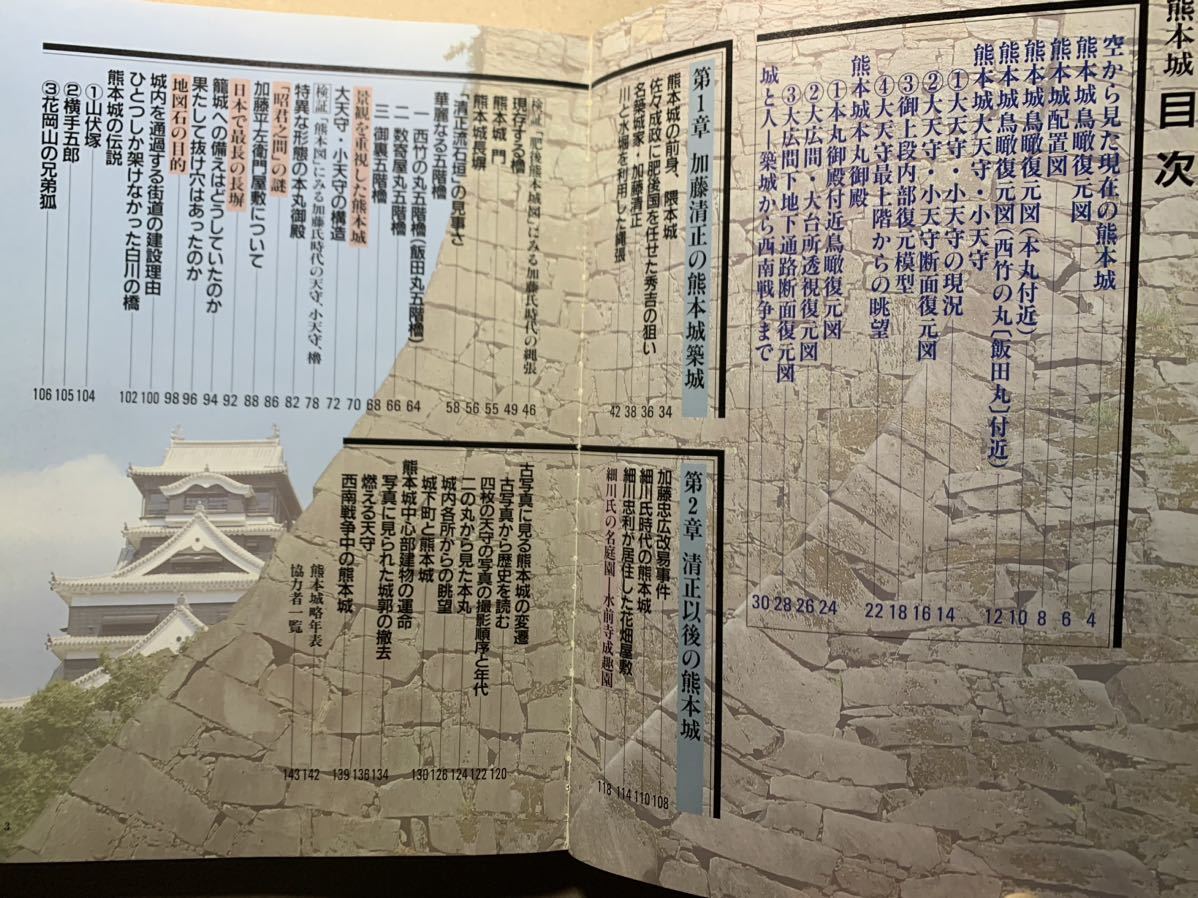 熊本城 目次
空から見た現在の熊本城 4
熊本城鳥瞰復元図 6
熊本城配置図 8
熊本城鳥瞰復元図(本丸付近) 10
熊本城鳥瞰復元図(西竹の丸〔飯田丸〕付近) 12
熊本城大天守・小天守
①大天守・小天守の現況 14
②大天守・小天守断面復元図 16
③御上段内部復元模型 18
④大天守最上階からの眺望 22
熊本城本丸御殿
①本丸御殿付近鳥瞰復元図 24
②大広間・大台所透視復元図 26
③大広間下地下通路断面復元図 28
城と人―築城から西南戦争まで 30
第1章 加藤清正の熊本城築城
熊本城の前身、隈本城 34
佐々成政に肥後国を任せた秀吉の狙い 36
名築城家・加藤清正 38
川と水堀を利用した縄張 42
検証「肥後熊本城図」にみる加藤氏時代の縄張 46
現存する櫓 49
熊本城 門 55
熊本城長塀 56
「清正流石垣」の見事さ 58
華麗なる五階櫓
一 西竹の丸五階櫓(飯田丸五階櫓) 64
二 数寄屋丸五階櫓 66
三 御裏五階櫓 68
景観を重視した熊本城 70
大天守・小天守の構造 72
検証「熊本図」にみる加藤氏時代の天守、小天守、櫓 78
特異な形態の本丸御殿 82
「昭君之間」の謎 86
加藤平左衛門屋敷について 88
日本で最長の長塀 92
籠城への備えはどうしていたのか 94
果たして抜け穴はあったのか 96
地図石の目的 98
城内を通過する街道の建設理由 100
ひとつしか架けなかった白川の橋 102
熊本城の伝説
①山伏塚 104
②横手五郎 105
③花岡山の兄弟狐 106
第2章 清正以後の熊本城
加藤忠広改易事件 108
細川氏時代の熊本城 110
細川忠利が居住した花畑屋敷 114
細川氏の名庭園―水前寺成趣園 118
古写真に見る熊本城の変遷
古写真から歴史を読む 120
四枚の天守の写真の撮影順序と年代 122
二の丸から見た本丸 124
城内各所からの眺望 126
城下町と熊本城 130
熊本城中心部建物の運命
写真に見られた城郭の撤去 134
燃える天守 136
西南戦争中の熊本城 139
熊本城略年表 142
協力者一覧 143
3